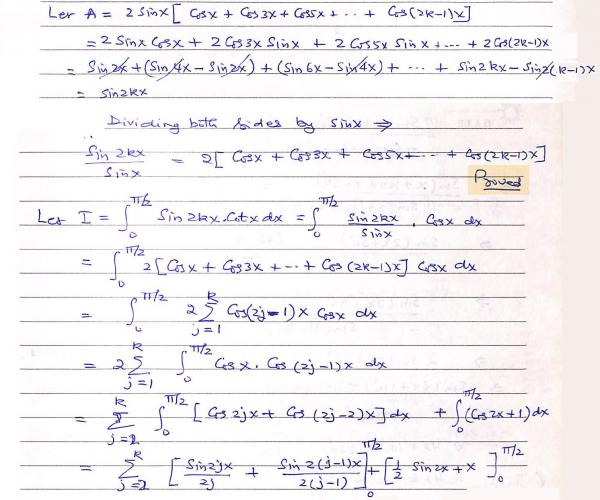 Let A = 2 Sinx [ Cosx + Cos3x + Cos5x + ... + Cos(2k-1)x ]
= 2 Sinx Cosx + 2 Cos3x Sinx + 2 Cos5x Sinx + ... + 2 Cos(2k-1)x
= Sin2x + (Sin4x - Sin2x) + (Sin6x - Sin4x) + ... + Sin2kx - Sin2(k-1)x
= Sin2kx
Dividing both Sides by Sinx ⇒
Sin2kx/Sinx = 2[ Cosx + Cos3x + Cos5x + ... + Cos(2k-1)x ]
Proved
Let I = ∫₀^π/2 Sin2kx.Cotx dx = ∫₀^π/2 Sin2kx/Sinx . Cosx dx
= ∫₀^π/2 2[Cosx + Cos3x + ... + Cos(2k-1)x] Cosx dx
= ∫₀^π/2 2 ∑_{j=1}^k Cos(2j-1)x Cosx dx
= 2 ∑_{j=1}^k ∫₀^π/2 Cosx . Cos(2j-1)x dx
= ∑_{j=2}^k ∫₀^π/2 [Cos2jx + Cos(2j-2)x] dx + ∫₀^π/2 (Cos2x+1)dx
= ∑_{j=2}^k [ Sin2jx/2j + Sin2(j-1)x/2(j-1) ]₀^π/2 + [ 1/2 Sin2x + x ]₀^π/2